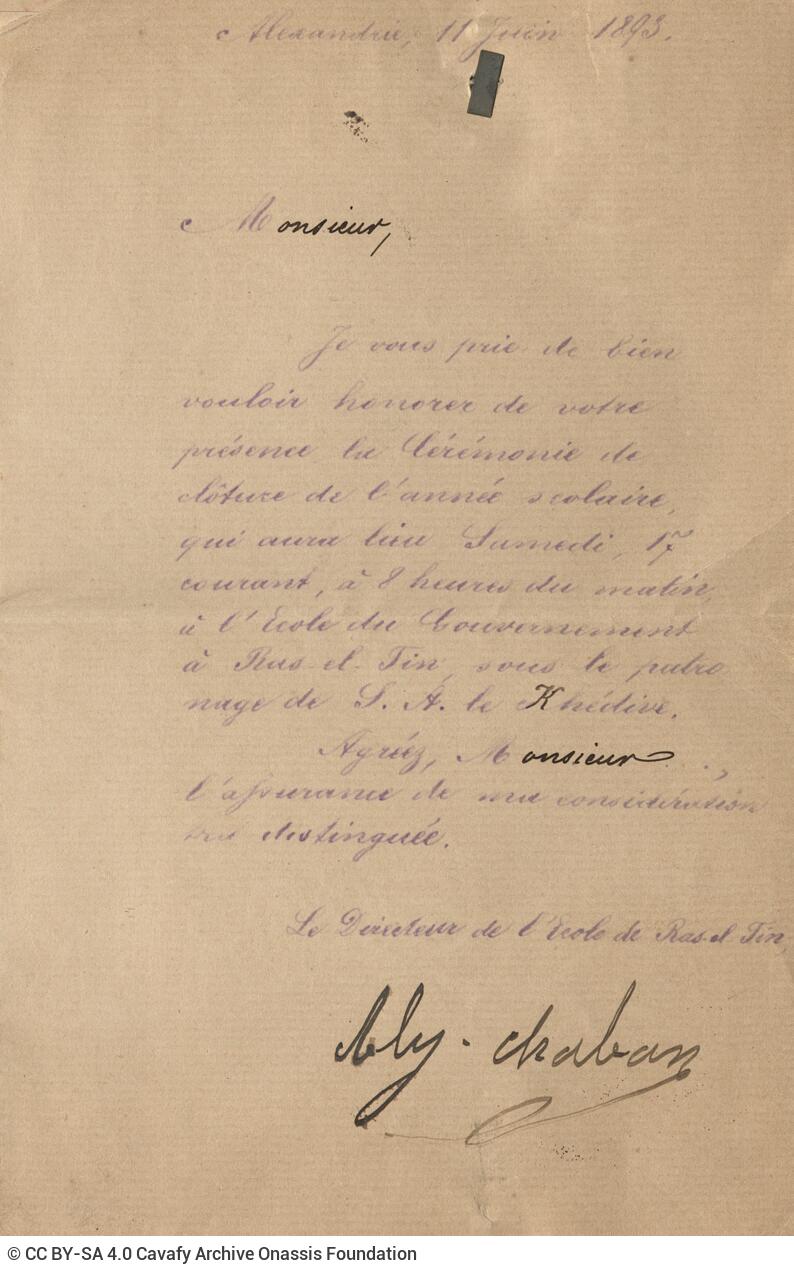 Alexandrie, 11 Juin 1893.
Monsieur,
Je vous prie de bien
vouloir honorer de votre
présence la Cérémonie de
clôture de l'année scolaire,
qui aura lieu Samedi, 17
courant, à 8 heures du matin,
à l'Ecole du Gouvernement
à Ras-el-Tin, sous le patro
nage de S. A. le Khédive.
Agréez, Monsieur,
l'assurance de ma considération
très distinguée.
Le Directeur de l'Ecole de Ras-el-Tin,
Aly. Chaban
© CC BY-SA 4.0 Cavafy Archive Onassis Foundation